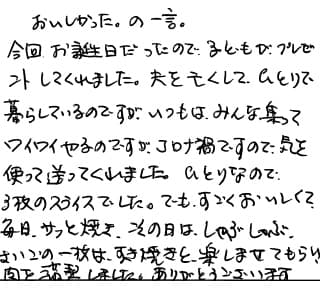 おいしかった。の一言。
今回、お誕生日だったので、子どもが、プレゼ
ントしてくれました。夫を亡くして、ひとりで
暮らしているのですが、いつもは、みんな集って
ワイワイやるのですが、コロナ禍ですので、気を
使って送ってくれました。ひとりなので、
3枚のスライスでした。でも、すごくおいしくて、
毎日、サッと焼き、次の日は、しゃぶしゃぶ、
さいごの一枚は、すき焼きと、楽しませてもらい
肉を満喫しました。ありがとうございます